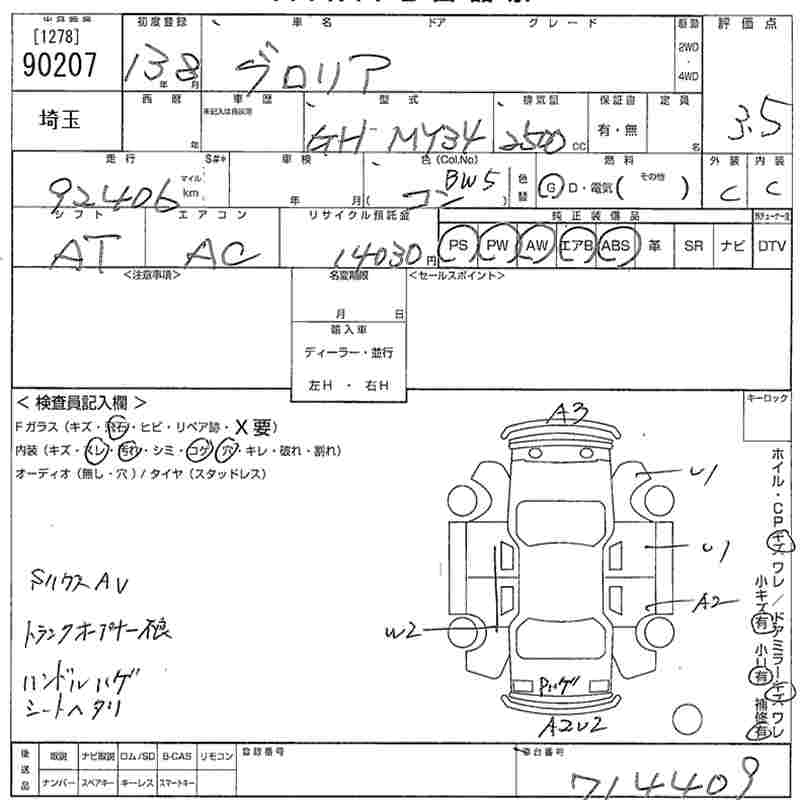 [1278]
90207
初度登録 車名 ドア グレード 駆動 評価点
13年8月 グロリア 2WD・4WD
埼玉
西暦 車歴 型式 排気量 保証書 定員 3.5
未記入は自家用
年 GH-MY34 2500cc 有・無 名
走行 S#* 車検 色(Col.No) 色替 燃料 外装 内装
92406 マイル km 年 月 ( コン BW5 ) G D・電気( その他 ) C C
シフト エアコン リサイクル預託金 純正装備品
AT AC 14030円 PS PW AW エアB ABS 革 SR ナビ DTV
<注意事項> 名変期限 <セールスポイント>
月 日
輸入車
ディーラー・並行
左H ・ 右H
< 検査員記入欄 > キーロック
Fガラス(キズ・飛石・ヒビ・リペア跡・X要)
内装(キズ・スレ・汚れ・シミ・コゲ・穴・キレ・破れ・割れ)
オーディオ(無し・穴)/タイヤ(スタッドレス)
A3
U1
U1
A2
W2
Pハゲ
A2U2
SリクスAV
トランクオープナー不良
ハンドルハゲ
シートヘタリ
ホイル・CPキズ ワレ/ドアミラーキズ ワレ
小キズ有 小U有 補修有
後送品 取説 ナビ取説 ロム/SD B-CAS リモコン 登録番号 車台番号
ナンバー スペアキー キーレス スマートキー 714409